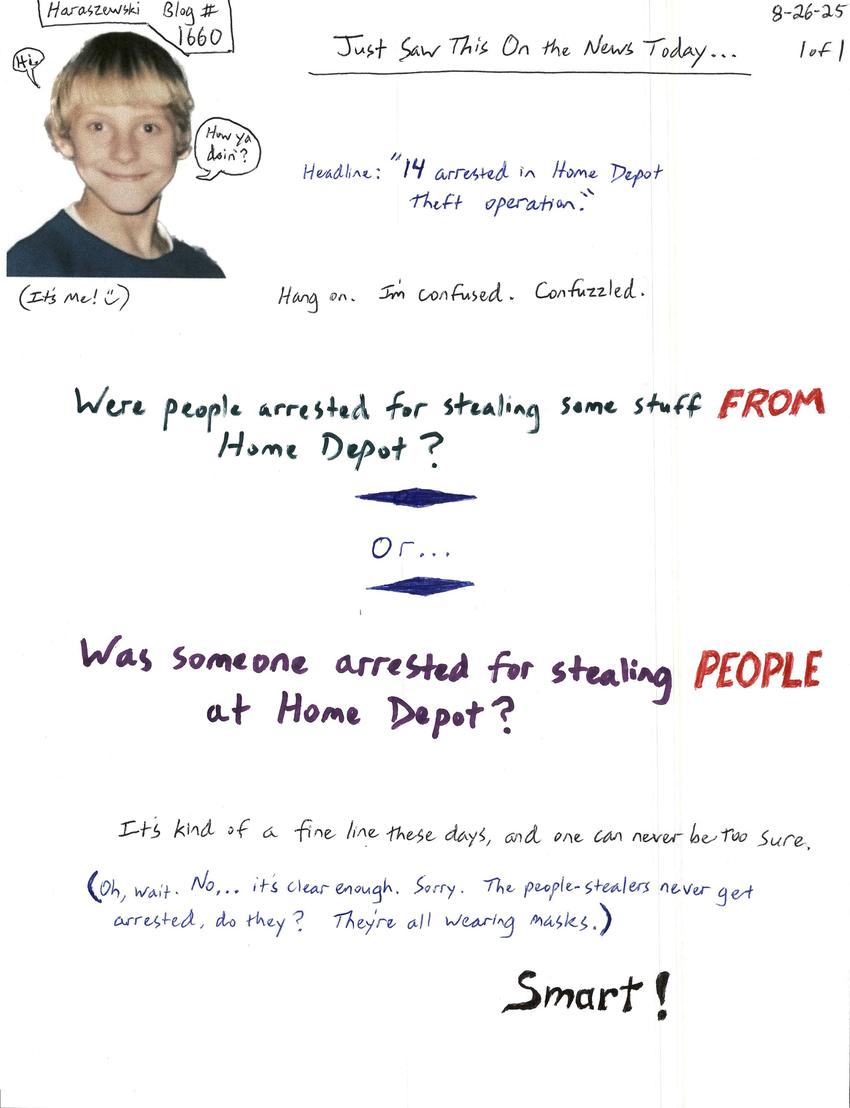 Haraszewski Blog #
1660
8-26-25
Just Saw This On the News Today...
1 of 1
Hi.
How ya
doin'?
Headline: "14 arrested in Home Depot
theft operation."
(It's me! )
Hang on. I'm confused. Confuzzled.
Were people arrested for stealing some stuff FROM
Home Depot?
Or...
Was someone arrested for stealing PEOPLE
at Home Depot?
It's kind of a fine line these days, and one can never be too sure.
(Oh, wait. No,.. it's clear enough. Sorry. The people-stealers never get
arrested, do they? They're all wearing masks.)
Smart!